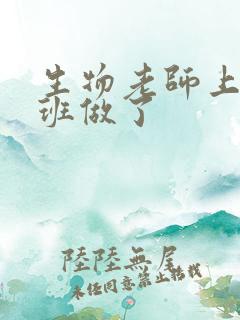 生物老師上
班做了
陸陸無尾
未經同意禁止搭機